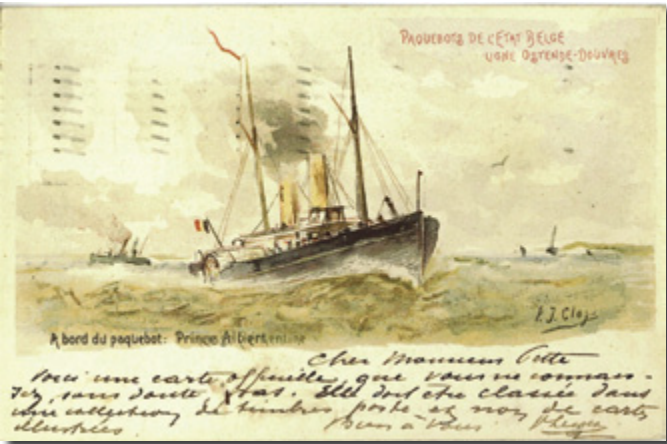 PAQUEBOTS DE L'ETAT BELGE
LIGNE OSTENDE-DOUVRES
A bord du paquebot: Prince Albert
Cher Monsieur
Voici une carte officielle, que vous ne connais-
sez, sans doute, pas. Elle doit être classée dans
une collection de timbres poste et non de cartes
illustrées Bien à vous